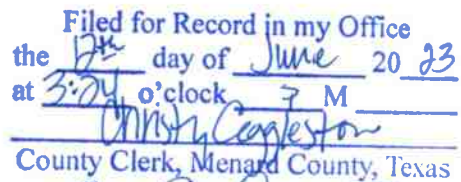 Filed for Record in my Office
the 12th day of June 20 23
at 3:24 o'clock M
Christy Eggleston
County Clerk, Menard County, Texas